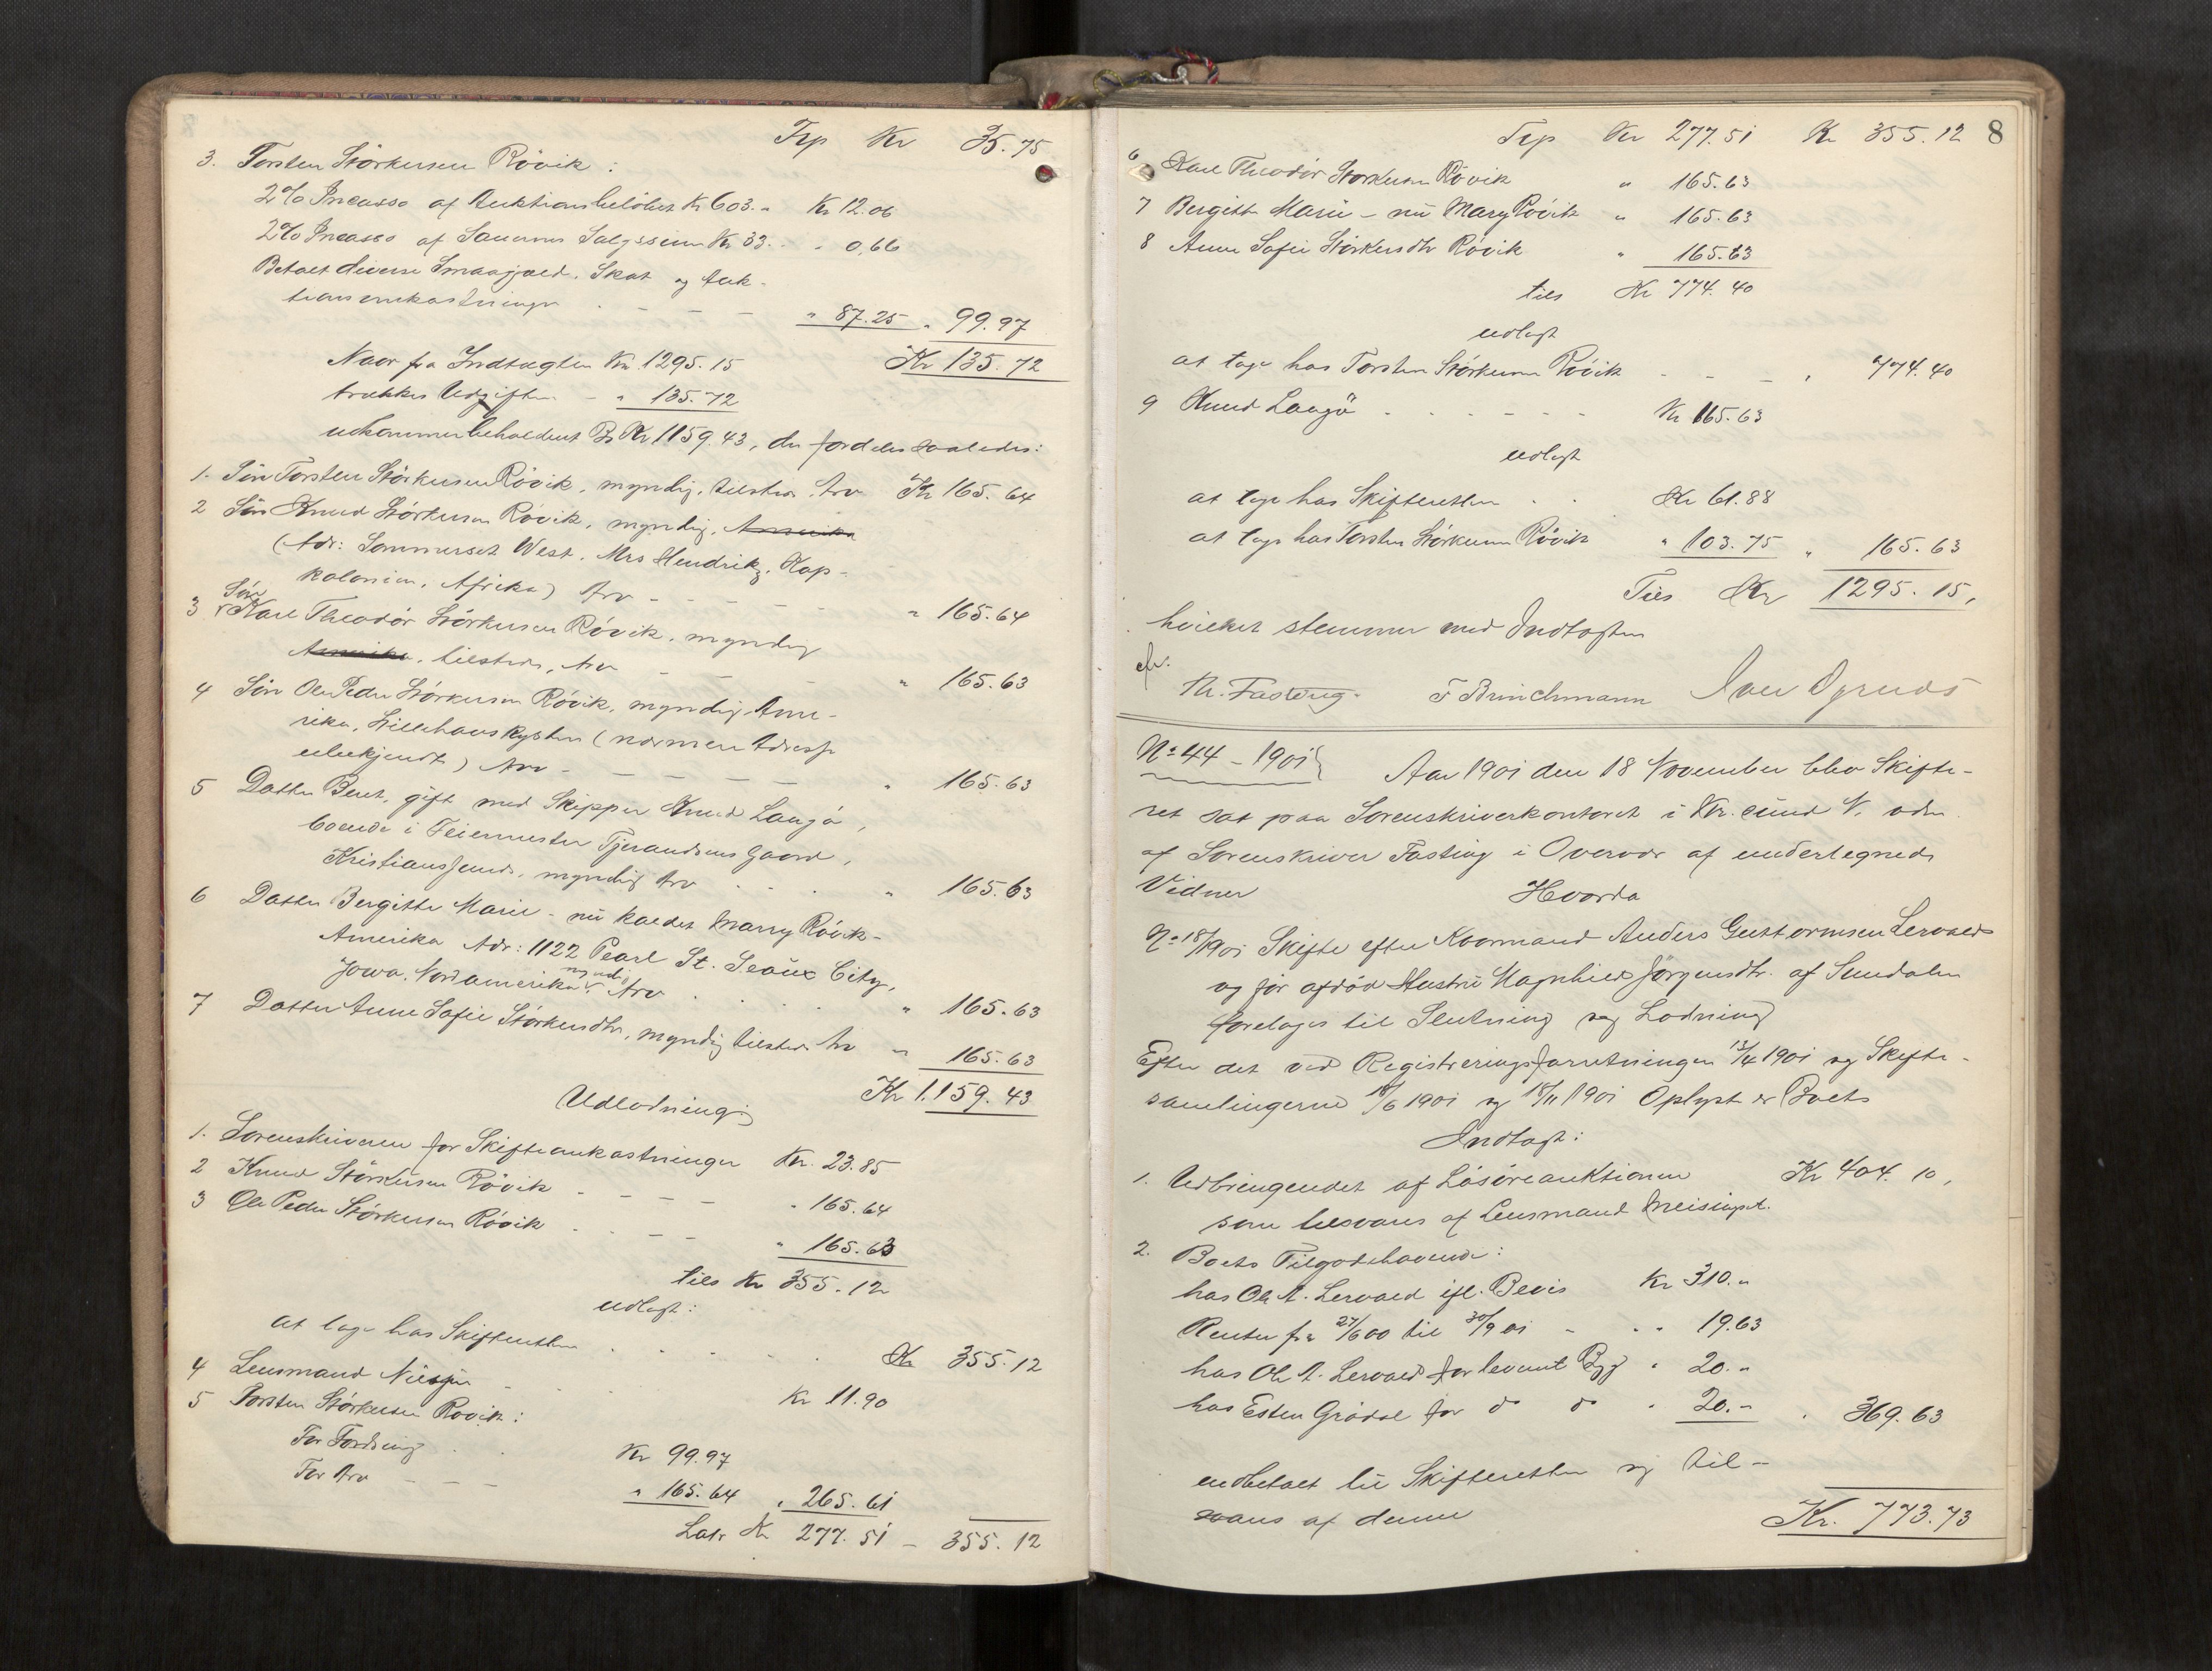 Trp Kr 35.75
3. Torsten Störkersen Rövik:
2% Incasso af Auktionsbelöbet Kr 603.- Kr 12.06
2% Incasso af Sauernes Salgssum Kr 33.- " 0,66
Betalt diverse Smaagjæld, Skat og Auk-
tionsomkostninger - - - " 87.25 " 99.97
Kr 135.72
Naar fra Indtægten Kr. 1295.15
trækkes Udgiften - " 135.72
udkommer beholdent Bo Kr 1159.43, der fordeles saaledes:
1. Sön Torsten Störkersen Rövik, myndig, tilstede, Arv Kr 165.64
2 Sön Knud Störkersen Rövik, myndig, Amerika
(Adr: Sommerset West, Mrs Hendrikz, Kap-
kolonien, Afrika) Arv - - - - " 165.64
3 Sön Karl Theodór Störkersen Rövik, myndig
Amerika, tilstede, Arv - - - " 165.63
4 Sön Ole Peder Störkersen Rövik, myndig, Ame-
rika, Stillehavskysten (nærmere Adresse
ubekjendt) Arv - - - - - " 165.63
5 Datter Berit, gift med Skipper Knud Langö,
boende i Feiermester Tjerandsens Gaard,
Kristianssund, myndig Arv . . . " 165.63
6 Datter Bergitte Marie - nu kaldet Mary Rövik -
Amerika Adr: 1122 Pearl St. Seaux City,
Jowa. Nordamerika, myndig Arv . . . " 165.63
7 Datter Anne Sofie Störkersdtr, myndig tilstede Arv " 165.63
Kr 1.159.43
Udlodning
1. Sorenskriveren for Skifteomkostninger Kr. 23.85
2 Knud Störkersen Rövik - - - - " 165.64
3 Ole Peder Störkersen Rövik - - - " 165.63
tils Kr 355.12
udlagt:
at tage hos Skifteretten . . . . . Kr 355.12
4 Lensmand - - - Kr 11.90
5 Torsten Störkersen Rövik:
For Fordring . . Kr 99.97
For Arv - - - " 165.64 " 265.61
Latr Kr 277.51 - 355.12
Trp Kr 277.51 Kr 355.12 8
6 Karl Theodór Störkersen Rövik " 165.63
7 Bergitte Marie - nu Mary Rövik " 165.63
8 Anne Sofie Störkersdtr Rövik " 165.63
tils Kr 774.40
udlagt
at tage hos Torsten Störkersen Rövik - - - " 774.40
9 Knud Langö - - - - - - Kr 165.63
udlagt
at tage hos Skifteretten . . Kr 61.88
at tage hos Torsten Störkersen Rövik " 103.75 " 165.63
Tils Kr 1295.15,
hvilket stemmer med Indtægten
Th. Fasting. F Brinchmann Iver
No 44 - 1901 Aar 1901 den 18 November blev Skifte-
ret sat paa Sorenskriverkontoret i Kr.sund N. adm.
af Sorenskriver Fasting i Overvær af undertegnede
Vidner Hvorda
No 18/1901 Skifte efter Kaarmand Anders Guttormsen Lervold
og för afdöd Hustru Magnhild Jörgensdtr. af Sundalen
foretages til Slutning og Lodning
Efter det ved Registreringsforretningen 13/4 1901 og Skifte-
samlingerne 18/6 1901 og 18/11 1901 Oplyst er Boets
Indtægt:
1. Udbringendet af Lösöreauktionen Kr 404.10,
som tilsvares af Lensmand Meisingset.
2. Boets Tilgodehavende:
hos Ole A. Lervold ifl. Bevis Kr 310.-
Renter fra 27/6 00 til 30/9 01 - . " 19.63
hos Ole A. Lervold for leveret Byg " 20.-
hos Esten Grödal for do do " 20.- " 369.63
indbetalt til Skifteretten og til-
svares af denne Kr. 773.73